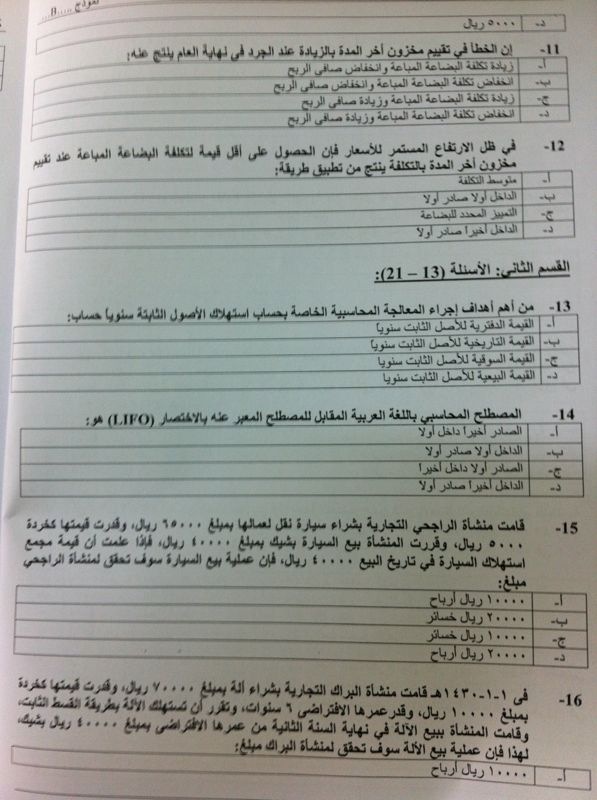 نموذج .....B...
د- ٥٠٠٠ ريال
11- إن الخطأ في تقييم مخزون أخر المدة بالزيادة عند الجرد في نهاية العام ينتج عنه:
أ- زيادة تكلفة البضاعة المباعة وانخفاض صافى الربح
ب- انخفاض تكلفة البضاعة المباعة وانخفاض صافى الربح
ج- زيادة تكلفة البضاعة المباعة وزيادة صافى الربح
د- انخفاض تكلفة البضاعة المباعة وزيادة صافى الربح
12- في ظل الارتفاع المستمر للأسعار فإن الحصول على أقل قيمة لتكلفة البضاعة المباعة عند تقييم
مخزون أخر المدة بالتكلفة ينتج من تطبيق طريقة:
أ- متوسط التكلفة
ب- الداخل أولا صادر أولا
ج- التمييز المحدد للبضاعة
د- الداخل أخيرا صادر أولا
القسم الثاني: الأسئلة (13 – 21):
13- من أهم أهداف إجراء المعالجة المحاسبية الخاصة بحساب استهلاك الأصول الثابتة سنوياً حساب:
أ- القيمة الدفترية للأصل الثابت سنوياً
ب- القيمة التاريخية للأصل الثابت سنوياً
ج- القيمة السوقية للأصل الثابت سنوياً
د- القيمة البيعية للأصل الثابت سنوياً
14- المصطلح المحاسبي باللغة العربية المقابل للمصطلح المعبر عنه بالاختصار (LIFO) هو:
أ- الصادر أخيراً داخل أولا
ب- الداخل أولا صادر أولا
ج- الصادر أولا داخل أخيراً
د- الداخل أخيراً صادر أولا
15- قامت منشأة الراجحي التجارية بشراء سيارة نقل لعمالها بمبلغ ٦٥٠٠٠ ريال، وقدرت قيمتها كخردة
٥٠٠٠ ريال، وقررت المنشأة بيع السيارة بشيك بمبلغ ٤٠٠٠٠ ريال، فإذا علمت أن قيمة مجمع
استهلاك السيارة في تاريخ البيع ٤٠٠٠٠ ريال، فإن عملية بيع السيارة سوف تحقق لمنشأة الراجحي
مبلغ:
أ- ١٠٠٠٠ ريال أرباح
ب- ٢٠٠٠٠ ريال خسائر
ج- ١٠٠٠٠ ريال خسائر
د- ٢٠٠٠٠ ريال أرباح
16- فى ١-١-١٤٣٠هـ قامت منشأة البراك التجارية بشراء آلة بمبلغ ٧٠٠٠٠ ريال، وقدرت قيمتها كخردة
بمبلغ ١٠٠٠٠ ريال، وقدر عمرها الافتراضى ٦ سنوات، وتقرر أن تستهلك الآلة بطريقة القسط الثابت،
وقامت المنشأة ببيع الآلة في نهاية السنة الثانية من عمرها الافتراضى بمبلغ ٤٠٠٠٠ ريال بشيك،
لهذا فإن عملية بيع الآلة سوف تحقق لمنشأة البراك مبلغ:
أ- ١٠٠٠٠ ريال أرباح